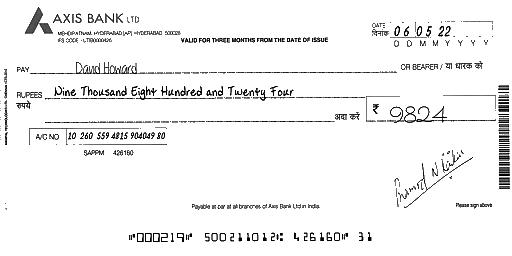 AXIS BANK LTD
MEHDIPATNAM, HYDERABAD [AP] HYDERABAD 500028
IFS CODE - UTIB0000426
VALID FOR THREE MONTHS FROM THE DATE OF ISSUE
DATE
दिनांक 06 05 22
D D M M Y Y Y Y
PAY David Howard OR BEARER / या धारक को
RUPEES Nine Thousand Eight Hundred and Twenty Four
रुपये अदा करें ₹ 9824
A/C NO 10 260 559 4815 904049 80
SAPPM 426160
Payable at par at all branches of Axis Bank Ltd in India.
Please sign above
⑈000219⑈ 500211012⑆ 426160⑈ 31